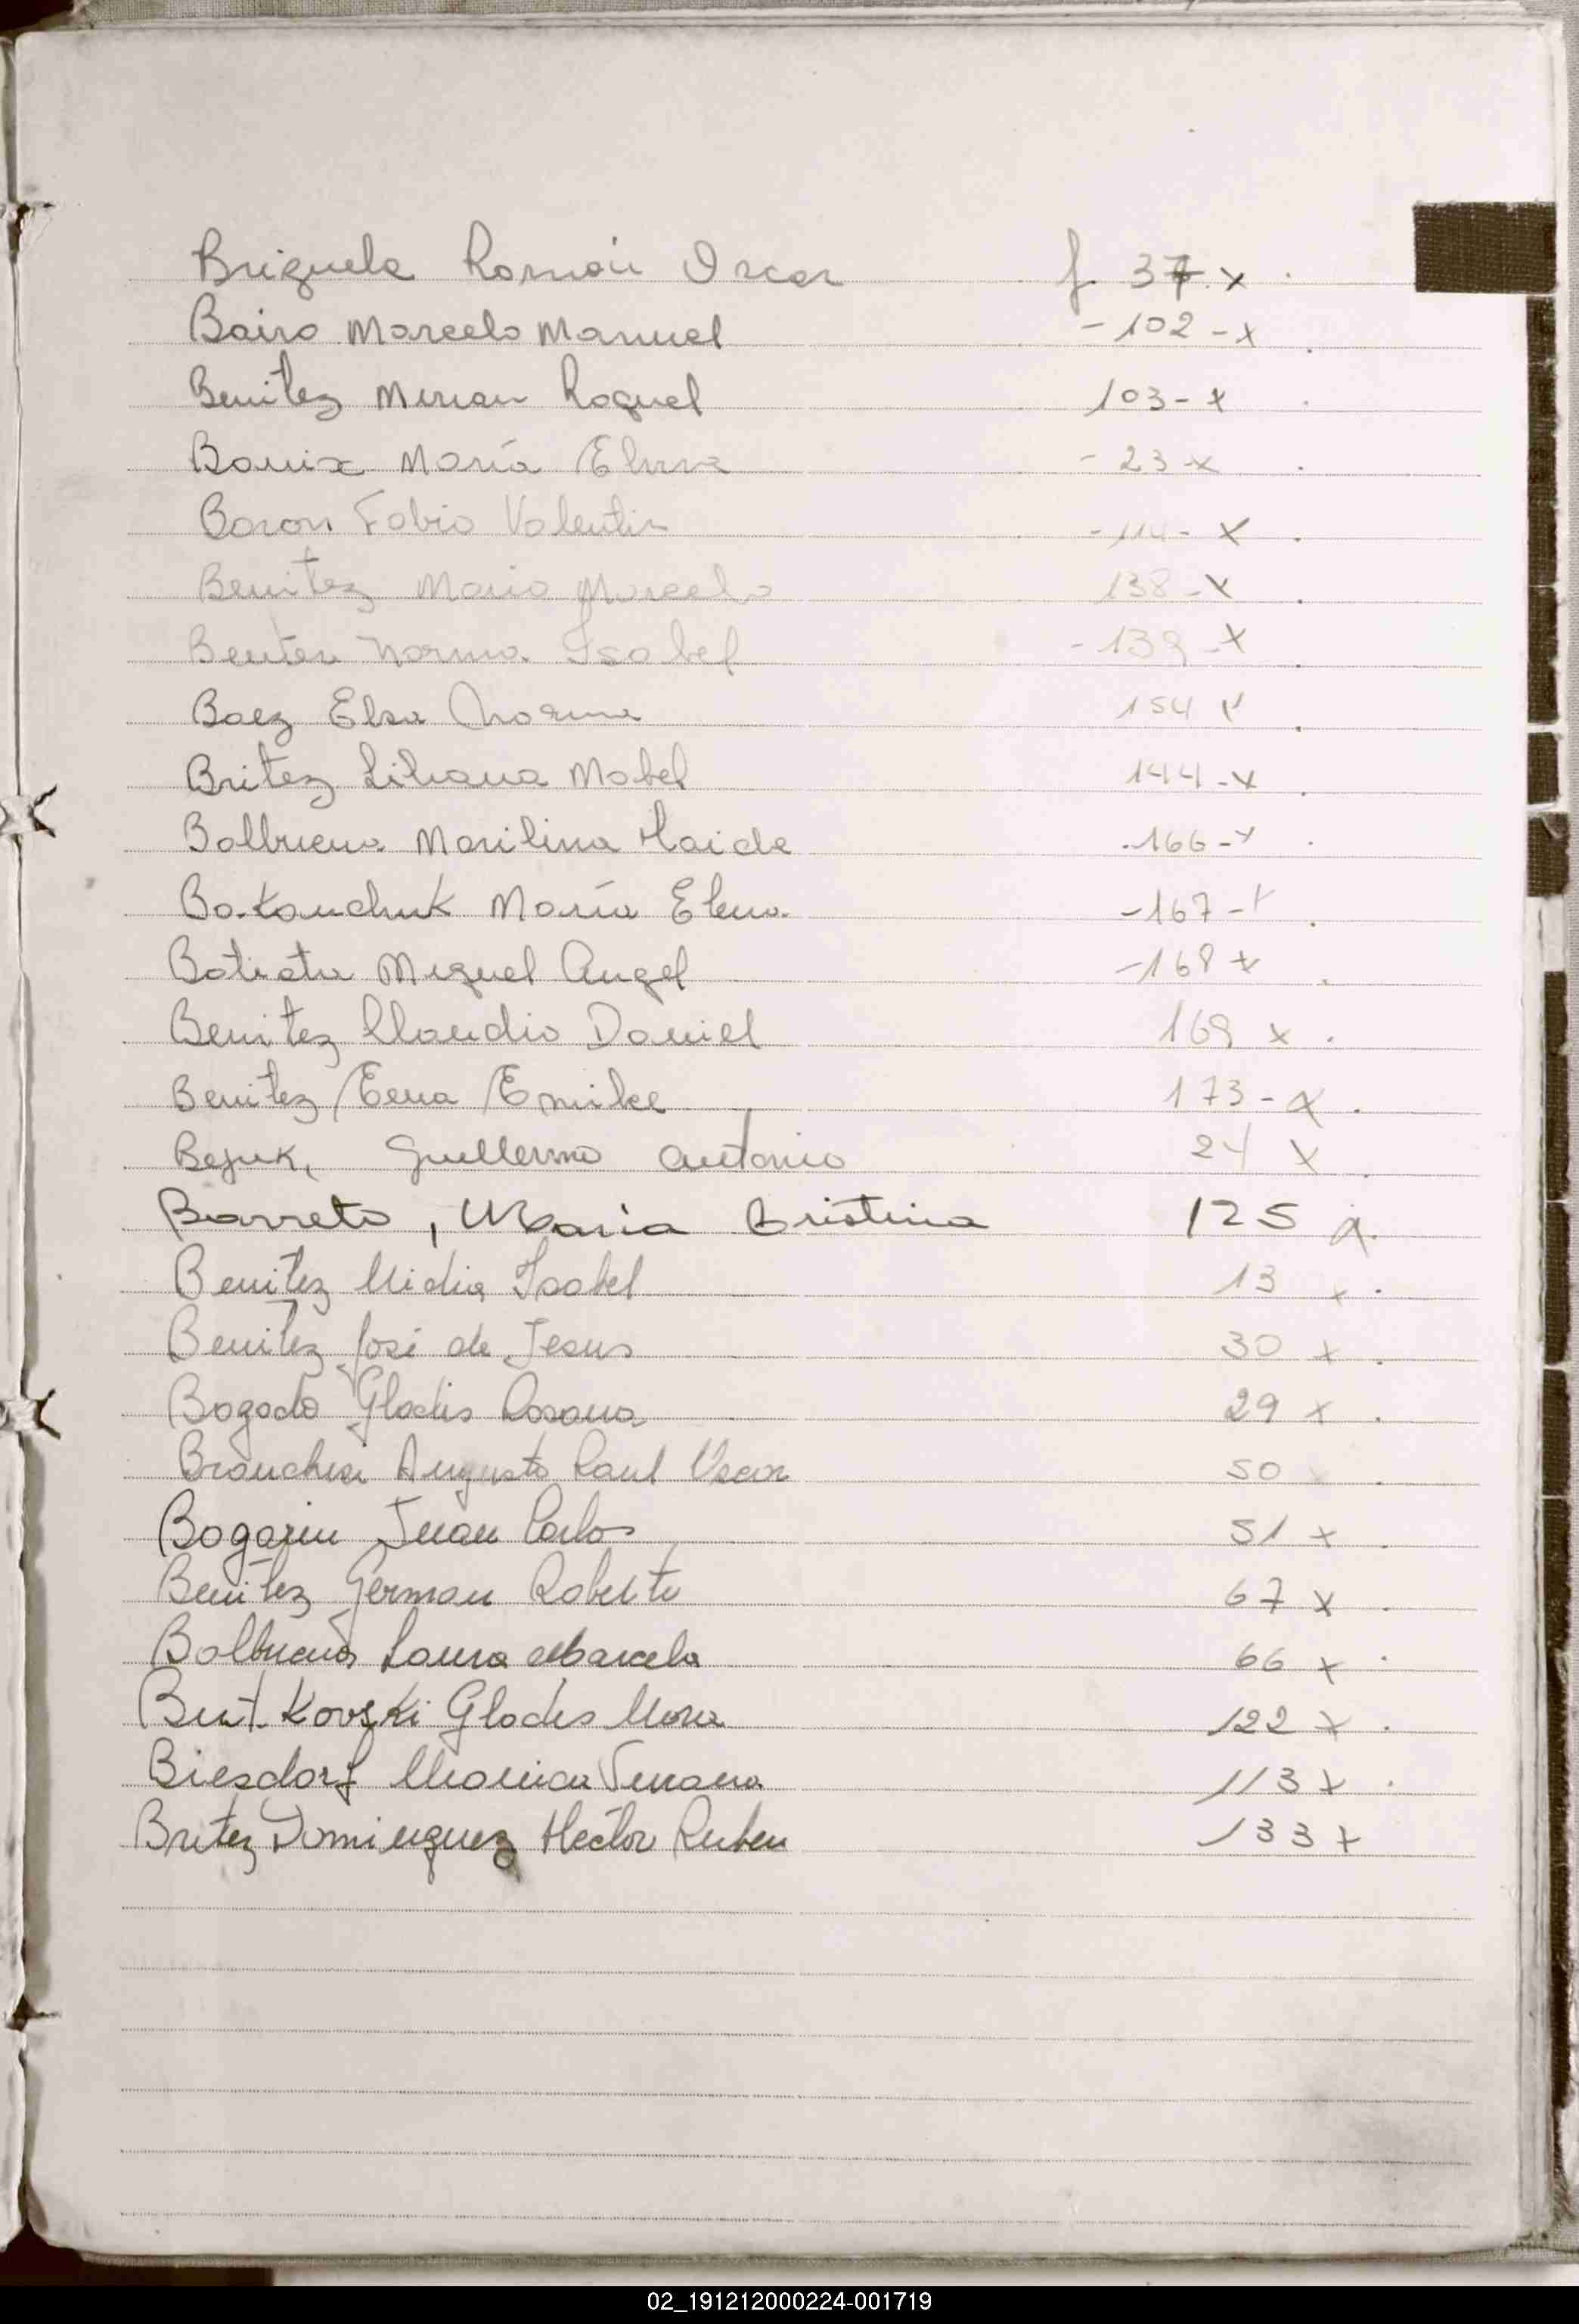 Briquela Román Oscar f 37 x
Bairo Marcelo Manuel - 102 - x
Benitez Mirian Raquel 103 - x
María Elvira - 23 - x
Baron Fabio Valentin - 114 - x
Benitez Mario Marcelo 138 - x
Norma Isabel - 139 - x
Baez Elsa Norma 154 x
Britez Liliana Mabel 144 - x
Balbuena Marilina Haide 166 - x
Bakanchuk María Elena - 167 - x
Batista Miguel Angel - 168 x
Benitez Claudio Daniel 169 x
Benitez 173 - x
Bejuk, Guillermo Antonio 24 x
Barreto, Maria Cristina 125 x
Benitez Nidia Isabel 13 x
Benitez José de Jesus 30 x
Bogado Gladis Rosana 29 x
Augusto Raul Oscar 50
Bogarin Juan Carlos 51 x
Benitez German Roberto 67 x
Balbuena Laura Marcela 66 x
Gladis Nora 122 x
Biesdorf Monica Viviana 113 x
Britez Dominguez Hector Ruben 133 x
02_191212000224-001719